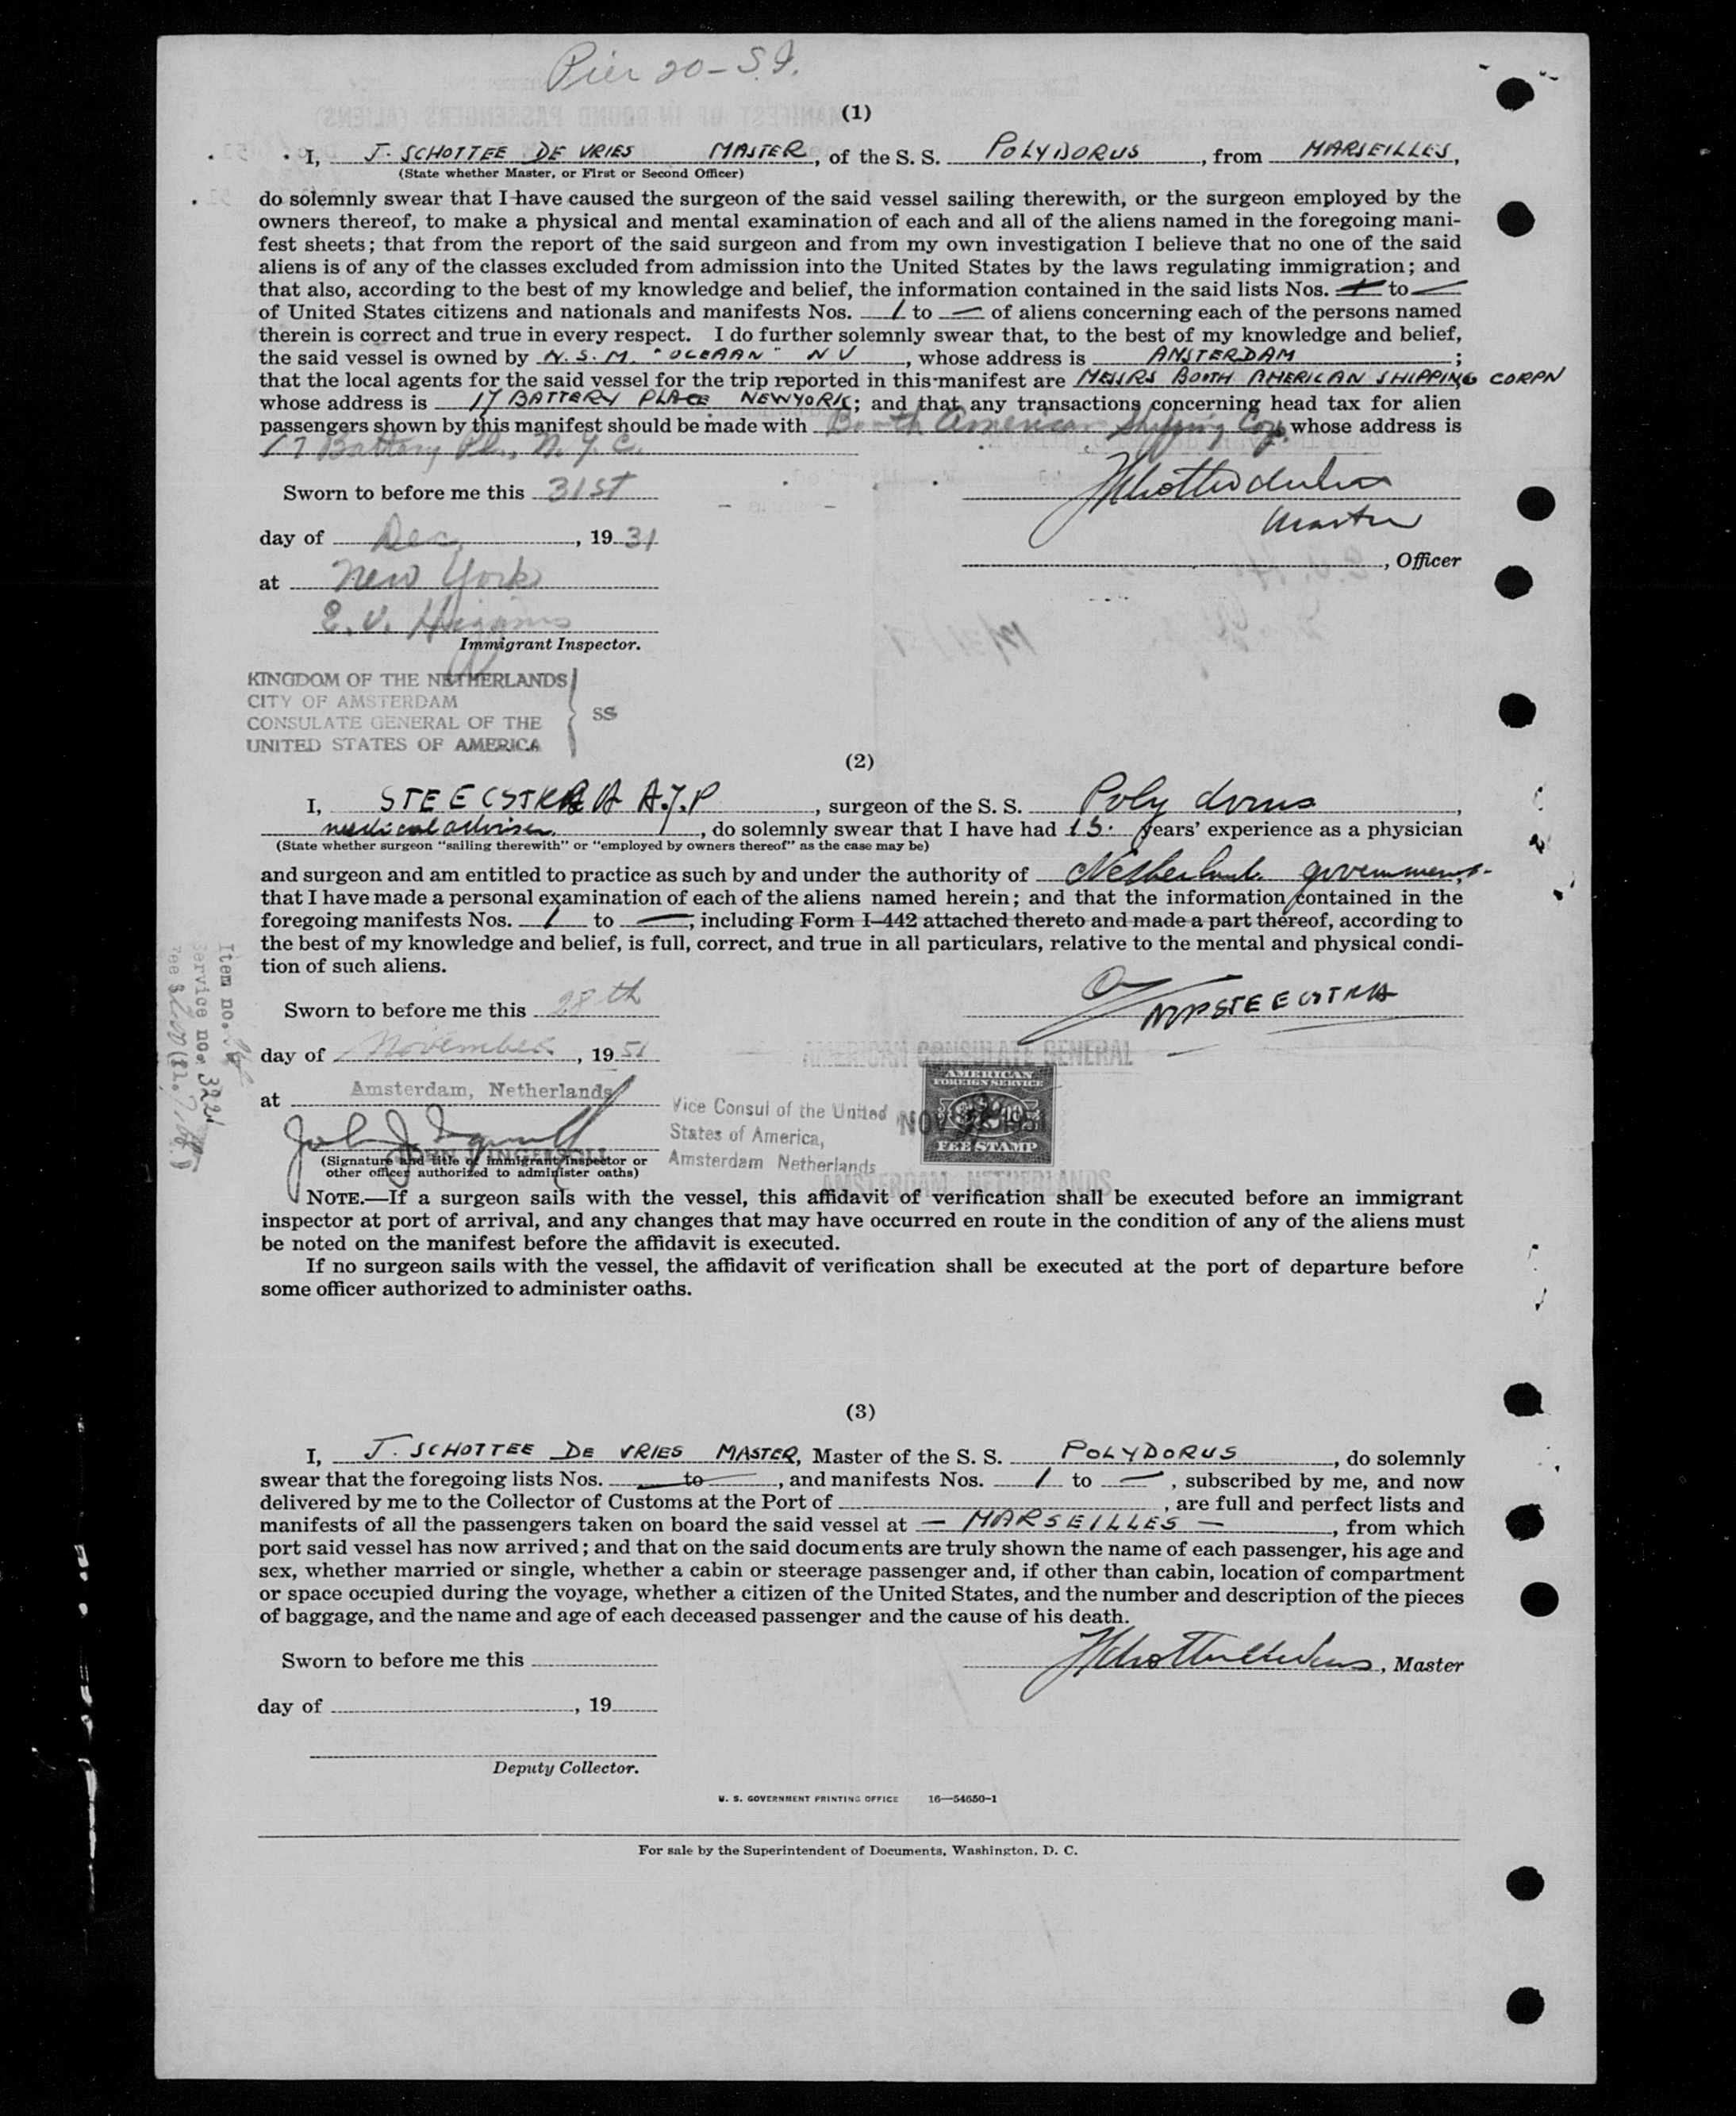 Pier 20 - S.I.
(1)
I, J. SCHOTTEE DE VRIES MASTER, of the S. S. POLYDORUS, from MARSEILLES,
(State whether Master, or First or Second Officer)
do solemnly swear that I have caused the surgeon of the said vessel sailing therewith, or the surgeon employed by the
owners thereof, to make a physical and mental examination of each and all of the aliens named in the foregoing mani-
fest sheets; that from the report of the said surgeon and from my own investigation I believe that no one of the said
aliens is of any of the classes excluded from admission into the United States by the laws regulating immigration; and
that also, according to the best of my knowledge and belief, the information contained in the said lists Nos. — to —
of United States citizens and nationals and manifests Nos. 1 to — of aliens concerning each of the persons named
therein is correct and true in every respect. I do further solemnly swear that, to the best of my knowledge and belief,
the said vessel is owned by N.S.M. "OCEAAN" NV, whose address is AMSTERDAM;
that the local agents for the said vessel for the trip reported in this manifest are MESSRS BOOTH AMERICAN SHIPPING CORPN
whose address is 17 BATTERY PLACE NEWYORK; and that any transactions concerning head tax for alien
passengers shown by this manifest should be made with Booth American Shipping Corp, whose address is
17 Battery Pl., N.Y.C.
Sworn to before me this 31st
day of Dec, 19 31
Master
at New York
, Officer
E. V. Higgins
Immigrant Inspector.
KINGDOM OF THE NETHERLANDS
CITY OF AMSTERDAM
CONSULATE GENERAL OF THE
UNITED STATES OF AMERICA
SS
(2)
I, STEECSTRA A.J.P, surgeon of the S. S. Polydorus,
medical adviser, do solemnly swear that I have had 15. years' experience as a physician
(State whether surgeon "sailing therewith" or "employed by owners thereof" as the case may be)
and surgeon and am entitled to practice as such by and under the authority of Netherlands government,
that I have made a personal examination of each of the aliens named herein; and that the information contained in the
foregoing manifests Nos. 1 to —, including Form I-442 attached thereto and made a part thereof, according to
the best of my knowledge and belief, is full, correct, and true in all particulars, relative to the mental and physical condi-
tion of such aliens.
Item no.
Service no. 3221
Fee
Sworn to before me this 28th
AJPSTEECSTRA
day of November, 1951
AMERICAN CONSULATE GENERAL
at Amsterdam, Netherlands
Vice Consul of the United
States of America,
Amsterdam Netherlands
AMERICAN
FOREIGN SERVICE
NOV 28 1951
FEE STAMP
AMSTERDAM, NETHERLANDS
(Signature and title of immigrant inspector or
other officer authorized to administer oaths)
NOTE.—If a surgeon sails with the vessel, this affidavit of verification shall be executed before an immigrant
inspector at port of arrival, and any changes that may have occurred en route in the condition of any of the aliens must
be noted on the manifest before the affidavit is executed.
If no surgeon sails with the vessel, the affidavit of verification shall be executed at the port of departure before
some officer authorized to administer oaths.
(3)
I, J. SCHOTTEE DE VRIES MASTER, Master of the S. S. POLYDORUS, do solemnly
swear that the foregoing lists Nos. — to —, and manifests Nos. 1 to —, subscribed by me, and now
delivered by me to the Collector of Customs at the Port of , are full and perfect lists and
manifests of all the passengers taken on board the said vessel at — MARSEILLES —, from which
port said vessel has now arrived; and that on the said documents are truly shown the name of each passenger, his age and
sex, whether married or single, whether a cabin or steerage passenger and, if other than cabin, location of compartment
or space occupied during the voyage, whether a citizen of the United States, and the number and description of the pieces
of baggage, and the name and age of each deceased passenger and the cause of his death.
Sworn to before me this
, Master
day of , 19
Deputy Collector.
U. S. GOVERNMENT PRINTING OFFICE 16—54650-1
For sale by the Superintendent of Documents, Washington, D. C.